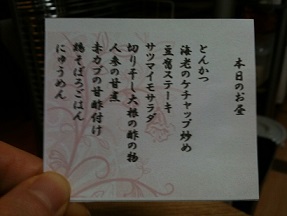 本日のお昼
とんかつ
海老のケチャップ炒め
豆腐ステーキ
サツマイモサラダ
切り干し大根の酢の物
人参の甘煮
赤カブの甘酢付け
鶏そぼろごはん
にゅうめん